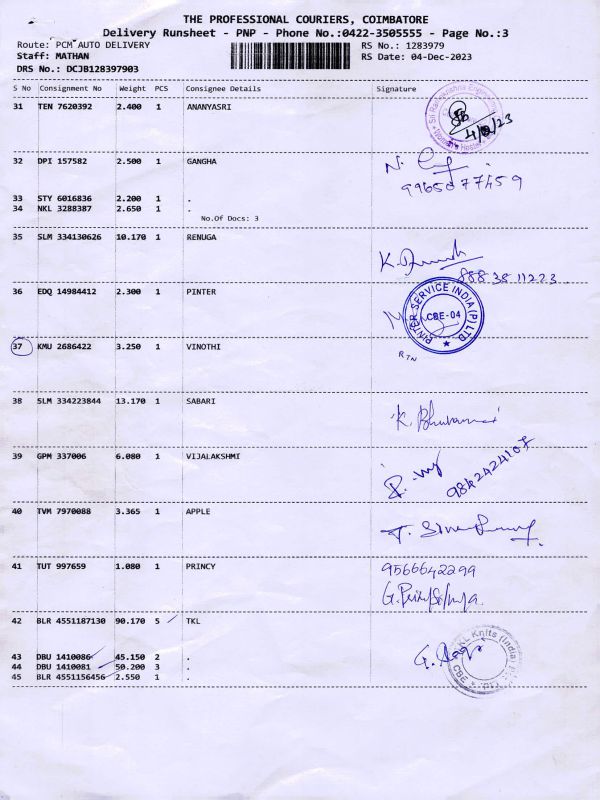 THE PROFESSIONAL COURIERS, COIMBATORE
Delivery Runsheet - PNP - Phone No.:0422-3505555 - Page No.:3
Route: PCM AUTO DELIVERY RS No.: 1283979
Staff: MATHAN RS Date: 04-Dec-2023
DRS No.: DCJB128397903
S No Consignment No Weight PCS Consignee Details Signature
31 TEN 7620392 2.400 1 ANANYASRI
Sri Ramakrishna Women's Hostel
32 DPI 157582 2.500 1 GANGHA
33 STY 6016836 2.200 1 .
34 NKL 3288387 2.650 1 .
No.Of Docs: 3
35 SLM 334130626 10.170 1 RENUGA
888 38 11223
36 EDQ 14984412 2.300 1 PINTER
PINTER SERVICE INDIA (P) LTD CBE-04
37 KMU 2686422 3.250 1 VINOTHI
RTN
38 SLM 334223844 13.170 1 SABARI
39 GPM 337006 6.080 1 VIJALAKSHMI
9842424107
40 TVM 7970088 3.365 1 APPLE
41 TUT 997659 1.080 1 PRINCY
9566642299
42 BLR 4551187130 90.170 5 TKL
43 DBU 1410086 45.150 2 .
44 DBU 1410081 50.200 3 .
45 BLR 4551156456 2.550 1 .
Knits (India)
CBE